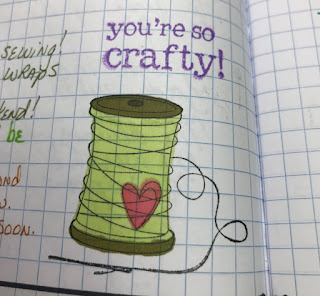 you're so
crafty!
SEWING!
WRAPS
BE
SOON.